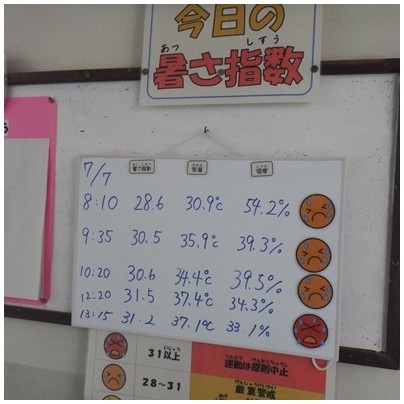 今日の
あつ しすう
暑さ指数
7/7 暑さ指数 気温 湿度
8:10 28.6 30.9℃ 54.2%
9:35 30.5 35.9℃ 39.3%
10:20 30.6 34.4℃ 39.5%
12:20 31.5 37.4℃ 34.3%
13:15 31.2 37.1℃ 33.1%
いじょう うんどう げんそくちゅうし
31以上 運動は原則中止
げんじゅうけいかい
28~31 厳重警戒